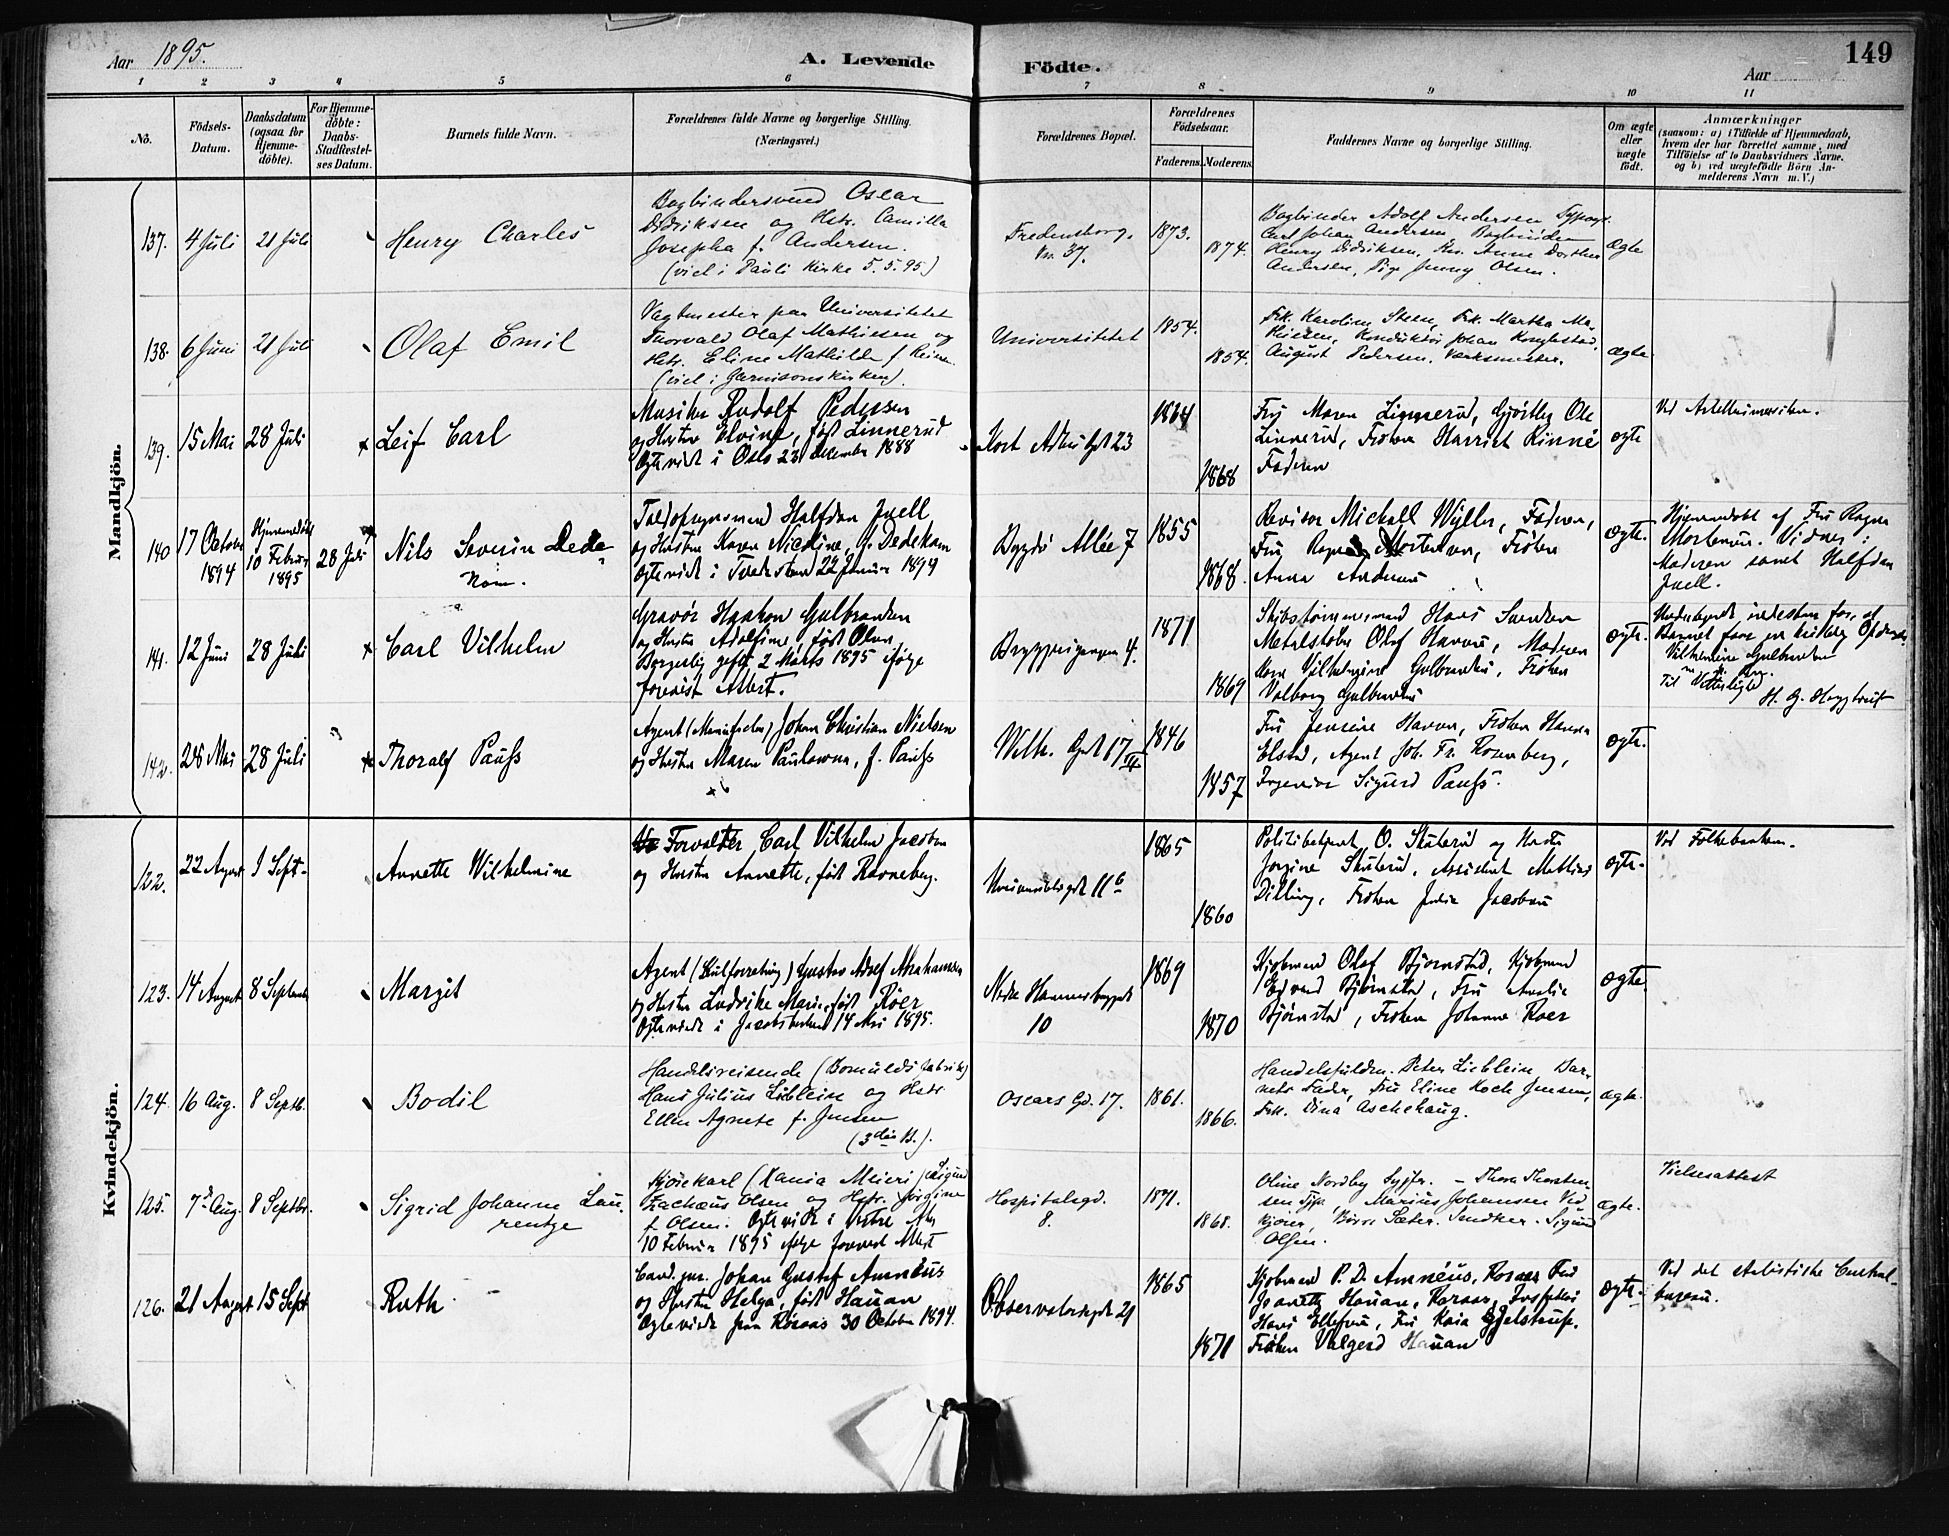 Aar 1895.
A. Levende Födte.
149
Aar
1 2 3 4 5 6 7 8 9 10 11
No.
Födsels-
Datum.
Daabsdatum
(ogsaa for
Hjemme-
döbte).
For Hjemme-
döbte:
Daabs-
Stadfæstel-
ses Datum.
Barnets fulde Navn.
Forældrenes fulde Navne og borgerlige Stilling.
(Næringsvei.)
Forældrenes Bopæl.
Forældrenes
Födselsaar.
Faderens. Moderens.
Faddernes Navne og borgerlige Stilling.
Om ægte
eller
uægte
födt.
Anmærkninger
(saasom: a) i Tilfælde af Hjemmedaab,
hvem der har forrettet samme, med
Tilföielse af to Daabsvidners Navne.
og b) ved uægtefödte Börn An-
melderens Navn m. V.)
Mandkjön.
137. 4 Juli 21 Juli
Henry Charles
Bogbindersvend Oscar
Didriksen og Hstr. Camilla
Josepha f. Andersen.
(viel i Pauli Kirke 5.5.95)
Fredensborg.
37.
1873.
1874.
Bogbinder Adolf Andersen Typogr.
Carl Johan Andersen Bogbinder
Henry Didriksen, Anne Dorthea
Andersen, Pige Jenny Olsen.
Ægte
138. 6 Juni 21 Juli
Olaf Emil
Vagtmester paa Universitetet
Thorvald Olaf Mathiesen og
Hstr. Eline Mathilde f.
(viel i Garnisonskirken).
Universitetet
1854.
1854.
Frk. Karoline Steen, Frk. Martha Ma-
thiesen, Konduktør Johan
August Pedersen. Værksmester.
ægte
139. 15 Mai 28 Juli
Leif Carl
Musiker Rudolf Pedersen
og Hustru Elvine, født Linnerud
Ægteviede i Oslo 23 December 1888
Kort Adlers Gd 23
1864
1868
Fru Maren Linnerud, Gjørtler Ole
Linnerud, Frøken Harriet Rinné
Faderen
ægte
Ved
140 17 October
1894
Hjemmedøbt
10 Februar
1895
28 Juli
Nils Severin Dede-
kam.
Toldopsynsmand Halfdan Juell
og Hustru Karen Nicoline, f. Dedekam
Ægteviede i Tvedestrand 22 Januar 1894
Bygdø Allée 7
1855
1868.
Revisor Michael Wyller, Faderen,
Fru Ragna Mortensen, Frøken
Anna Andersen
ægte.
Hjemmedøbt af Fru Ragna
Mortensen. Vidner:
Moderen samt Halfdan
Juell.
141. 12 Juni 28 Juli
Carl Vilhelm
Gravør Haakon Gulbrandsen
og Hustru Adolfine, født Olsen
Borgerlig gifte, 2 Marts 1895 ifølge
forevist Attest.
Bryggerigangen 4.
1871
1869
Skibstømmermand Hans Svendsen
Metalstøber Olaf Hansen, Moderen
Vilhelmine Gulbrandsen, Frøken
Valborg Gulbrandsen
ægte.
Vilhelmine Gulbrandsen
Til Vitterlighed
142. 28 Mai 28 Juli
Thoralf Pauss
Agent (Manufactur) Johan Christian Nielsen
og Hustru Maren Paulowna, f. Pauss
Welh. Gade 17 III
1846
1857
Fru Jensine Hansen, Frøken Hanna
Elstad, Agent Joh. Fr. Rosenberg,
Ingeniør Sigurd Pauss.
ægte.
Kvindekjön.
122. 22 August 1 Sept.
Annette Vilhelmine
Forvalter Carl Vilhelm Jacobsen
og Hustru Annette, født Ravneberg.
Universitetsgd 11 b
1865
1860
Politibetjent O. Skuterud og Hustru
Jørgine Skuterud, Assistent Mathias
Dilling, Frøken Julie Jacobsen
ægte.
Ved Folkebanken.
123. 14 August 8 September
Margit
Agent (Kulforretning) Gustav Adolf Abrahamsen
og Hustru Ludvikke Marie, født Röer
Ægteviede i Jacobskirken 14 Mai 1895.
Nedre Hammersborggade
10
1869
1870
Kjøbmand Olaf Bjørnstad, Kjøbmand
Edvard Bjørnstad, Fru Amalie
Bjørnstad, Frøken Johanne Roer
ægte.
124. 16 Aug. 8 Septb.
Bodil
Handelsreisende (Bomuldsfabrik)
Hans Julius Lieblein og Hstr
Ellen Agnete f. Jensen
(3die B.).
Oscars Gd. 17.
1861.
1866.
Handelsfuldm. Peter Lieblein, Bar-
nets Fader, Fru Eline Koch Jensen,
Frk. Dina Aschehoug.
ægte.
125. 7de Aug. 8 Septbr.
Sigrid Johanne Lau-
rentze
Kjørekarl (Kania Meieri) Sigurd
Zachæus Olsen og Hstr. Jørgine
f. Olsen. Ægteviede i Vestre Aker
10 Februar 1895 ifølge forevist Attest
Hospitalsgd.
8.
1871.
1868.
Oline Nordby Syjfr. - Thora Thorsten-
sen Pige, Marius Johannesen Ved-
kjører, Sæter. Snedker. Sigurd
Olsen.
ægte.
Vielsesattest
126. 21 August 15 Sept
Ruth
Cand. jur. Johan Gustaf Amnéus
og Hustru Helga, født Hauan
Ægteviede paa Röraas 30 October 1894.
Observatoriegd 21
1865
1871
Kjøbmand P. D. Amnéus, Roraas, Fru
Jeanette Hauan, Roraas,
Hans Ellefsen, Fru Kaia Gjelstrup.
Frøken Valgerd Hauan
ægte.
Ved det statistiske Central-
bureau.